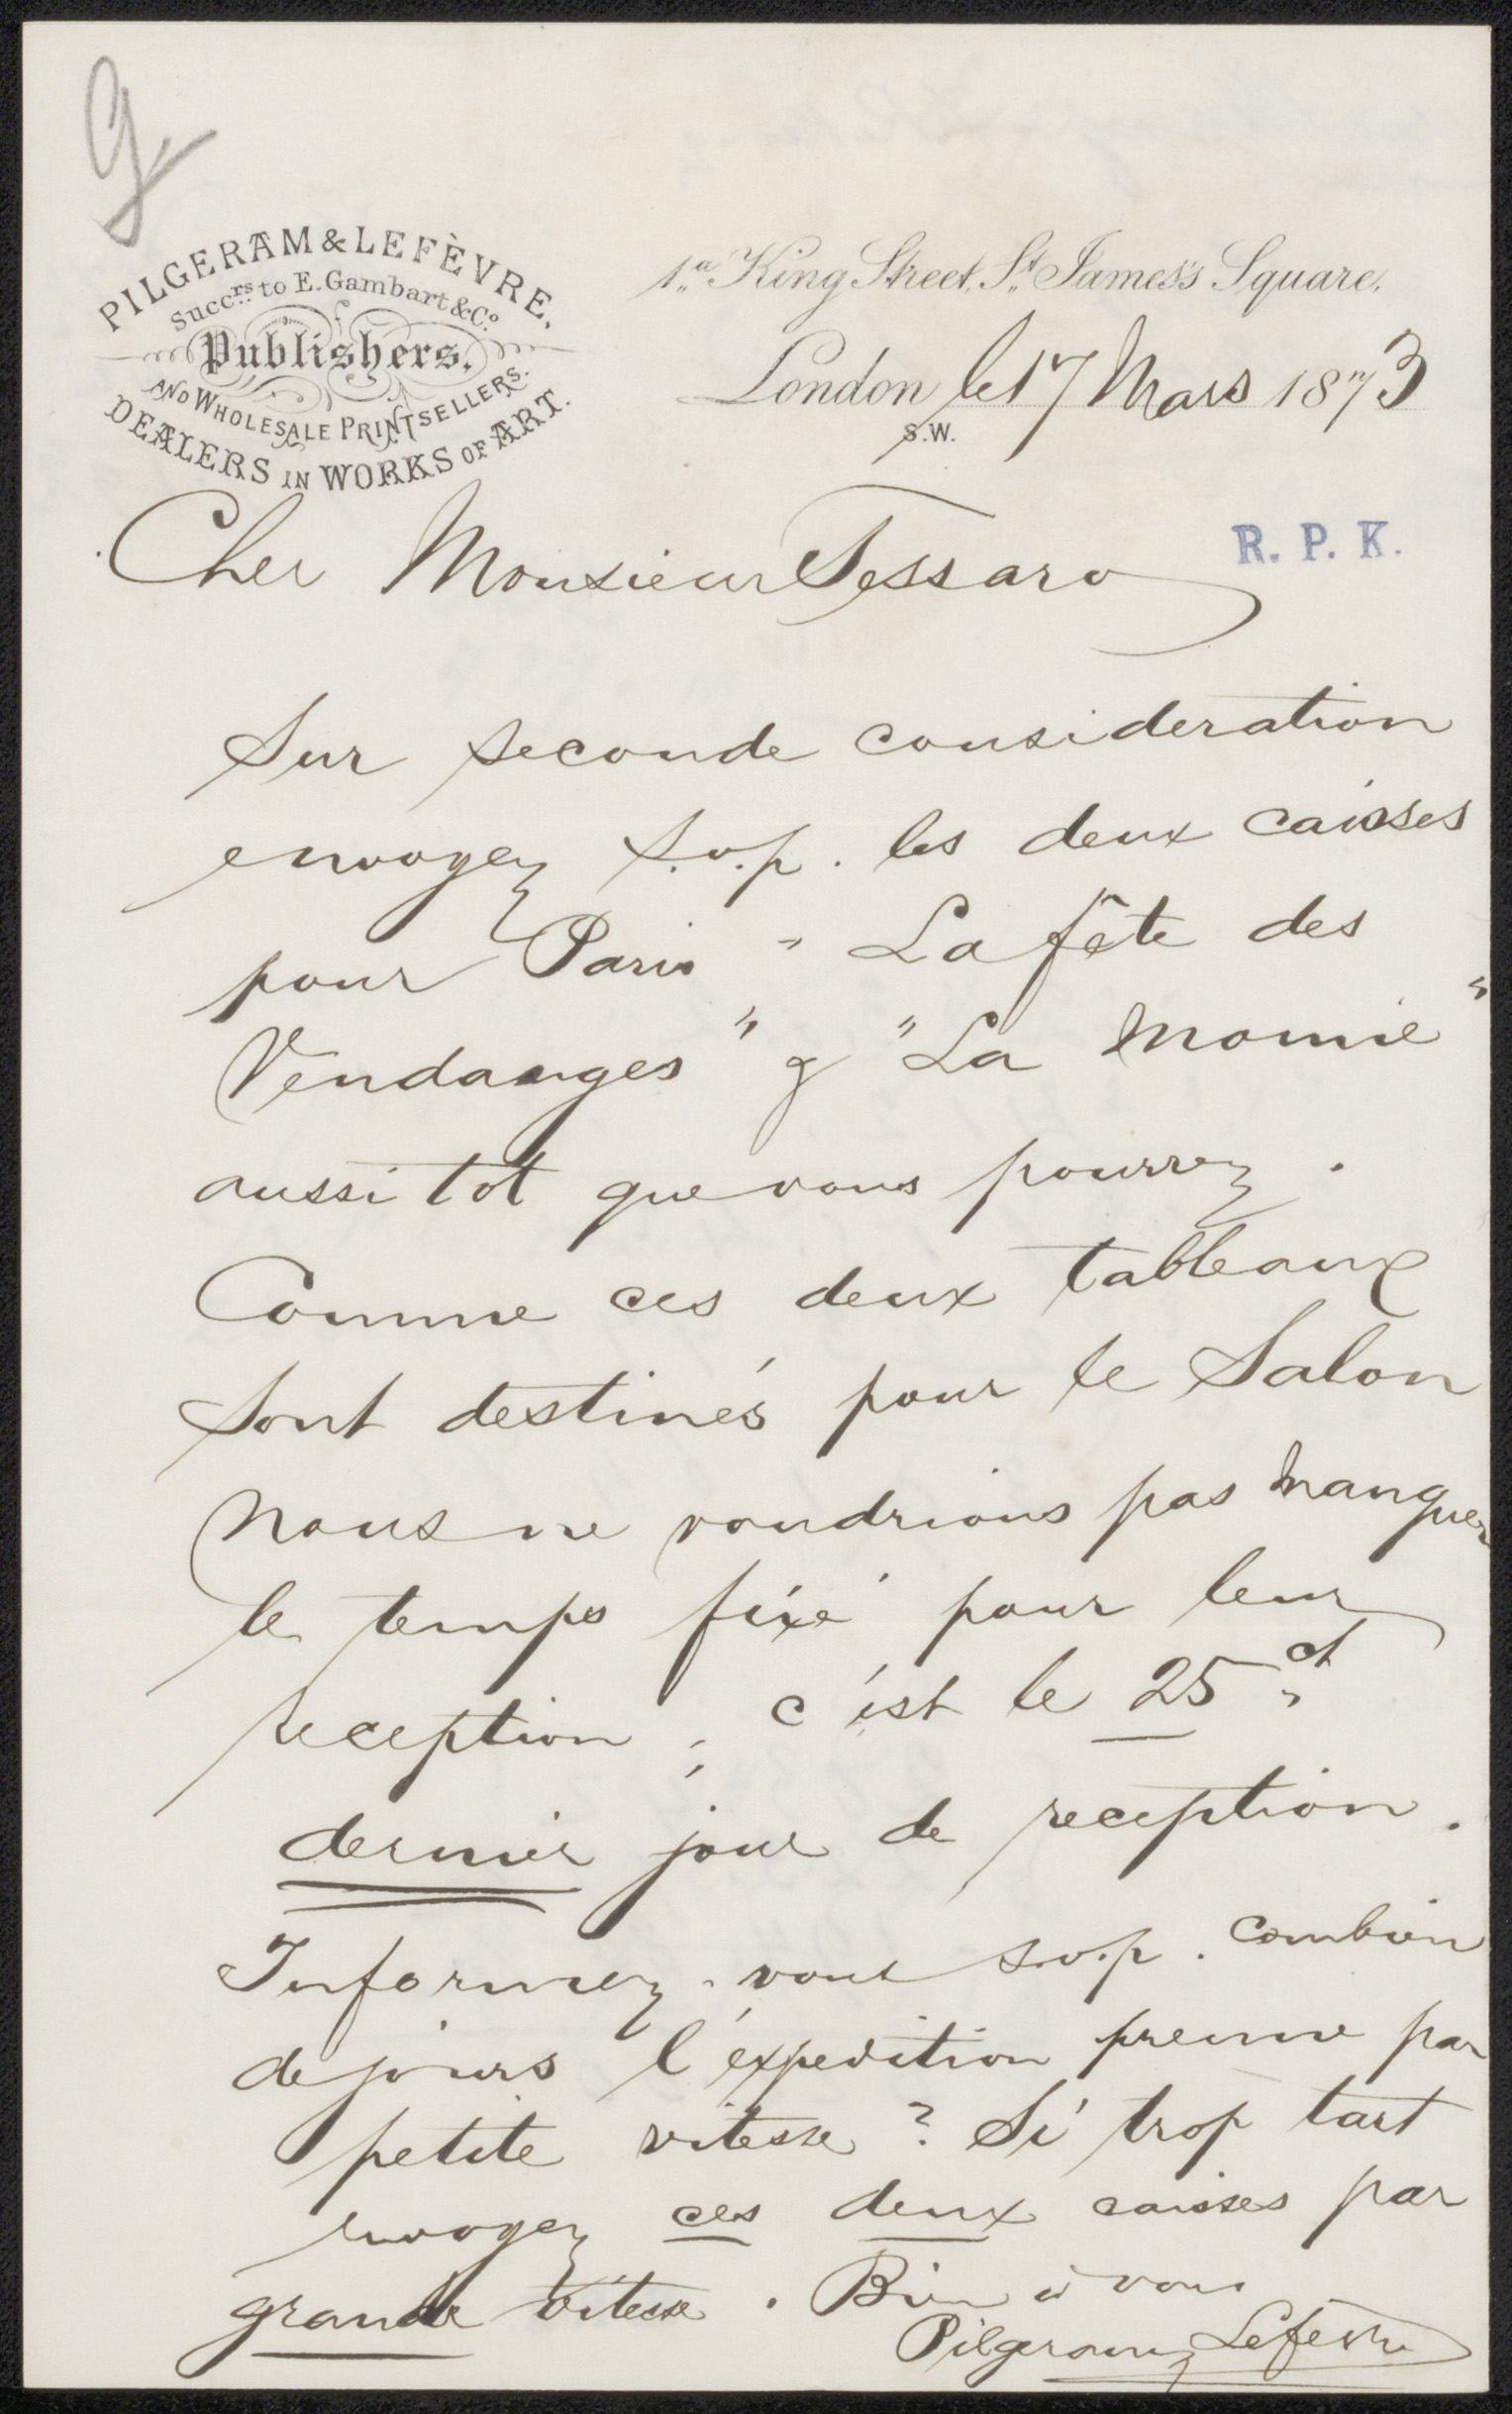 g
PILGERAM & LEFÈVRE,
Succrs. to E. Gambart & Co.
Publishers,
AND WHOLESALE PRINTSELLERS.
DEALERS IN WORKS OF ART.
1a King Street, St. James's Square,
London le 17 Mars 1873
S.W.
R. P. K.
Cher Monsieur Tessaro
Sur seconde consideration
envoyez s.v.p. les deux caisses
pour Paris " La fête des
Vendanges " & " La Momie "
aussi tot que vous pourrez.
Comme ces deux tableaux
sont destinés pour le Salon
nous ne voudrions pas manquer
le temps fixé pour leur
reception ; c'est le 25 ct
dernier jour de reception.
Informez-vous s.v.p. combien
de jours l'expedition prenne par
petite vitesse ? Si trop tart
envoyez ces deux caisses par
grande vitesse. Bien à vous
Pilgeram & Lefèvre